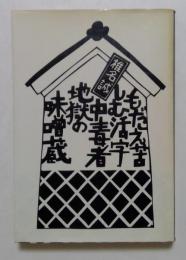 椎名誠
もだえ苦
しむ活字
中毒者
地獄の
味噌蔵